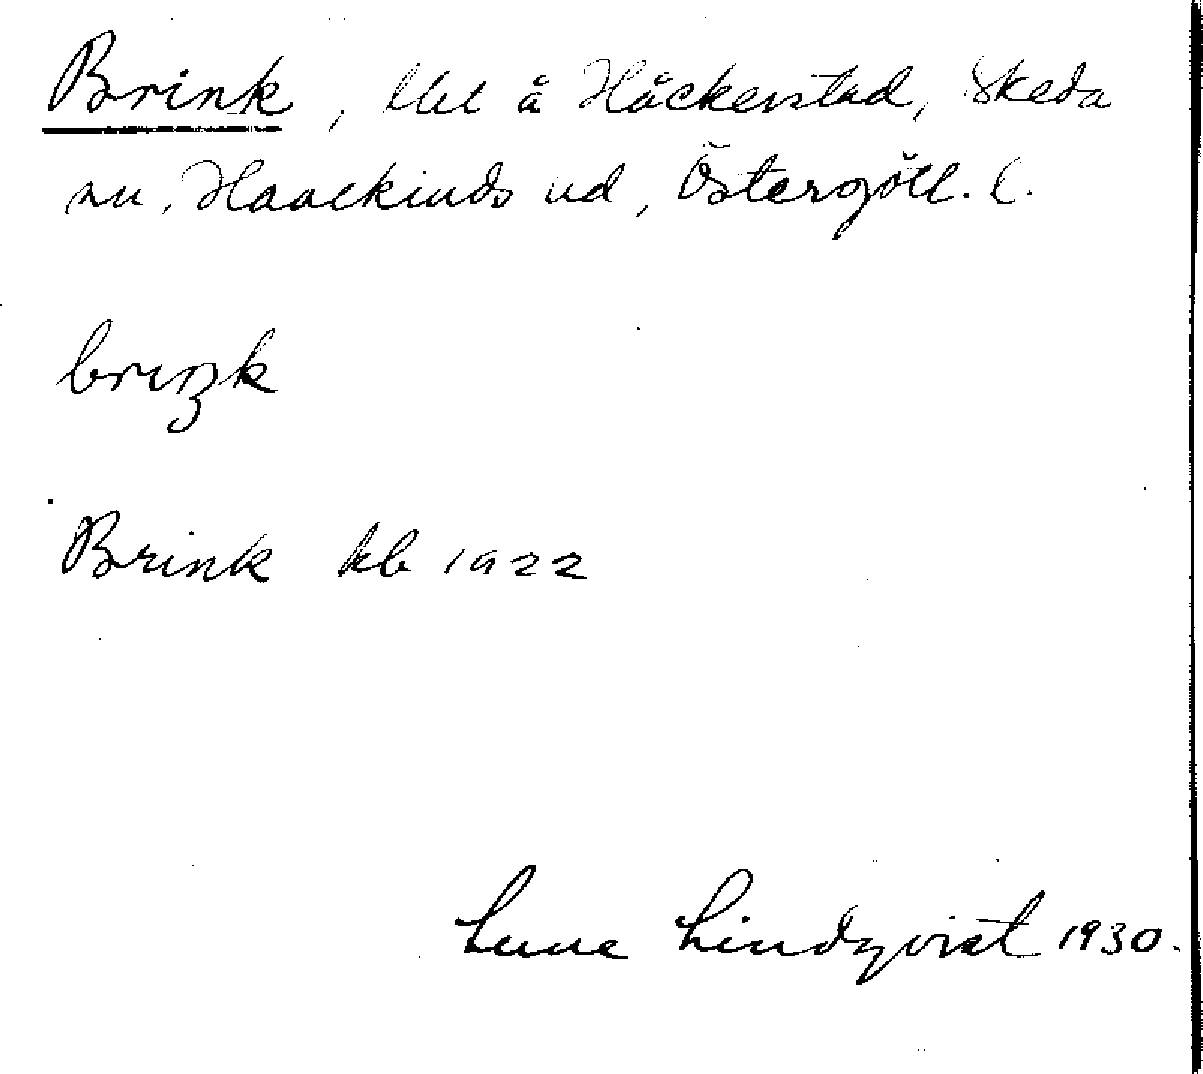 Brink, lht å Håckerstad, Skeda
sn, Hanekinds hd, Östergötl. l.
brıŋk
Brink kb 1922
Sune Lindqvist 1930.